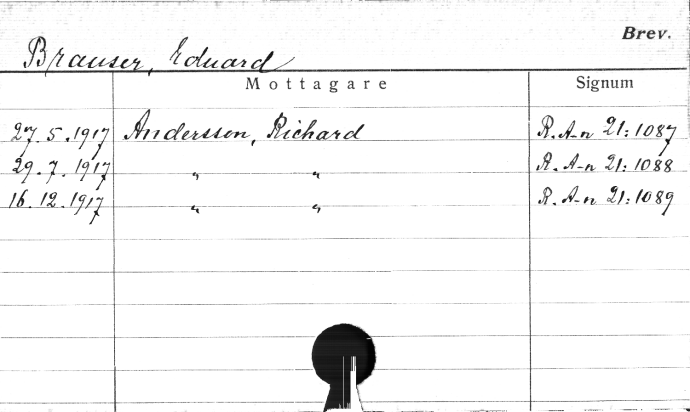 Brev.
Brauser, Eduard
Mottagare Signum
27.5.1917 Andersson, Richard R. A-n 21:1087
29.7.1917 " " R. A-n 21:1088
16.12.1917 " " R. A-n 21:1089